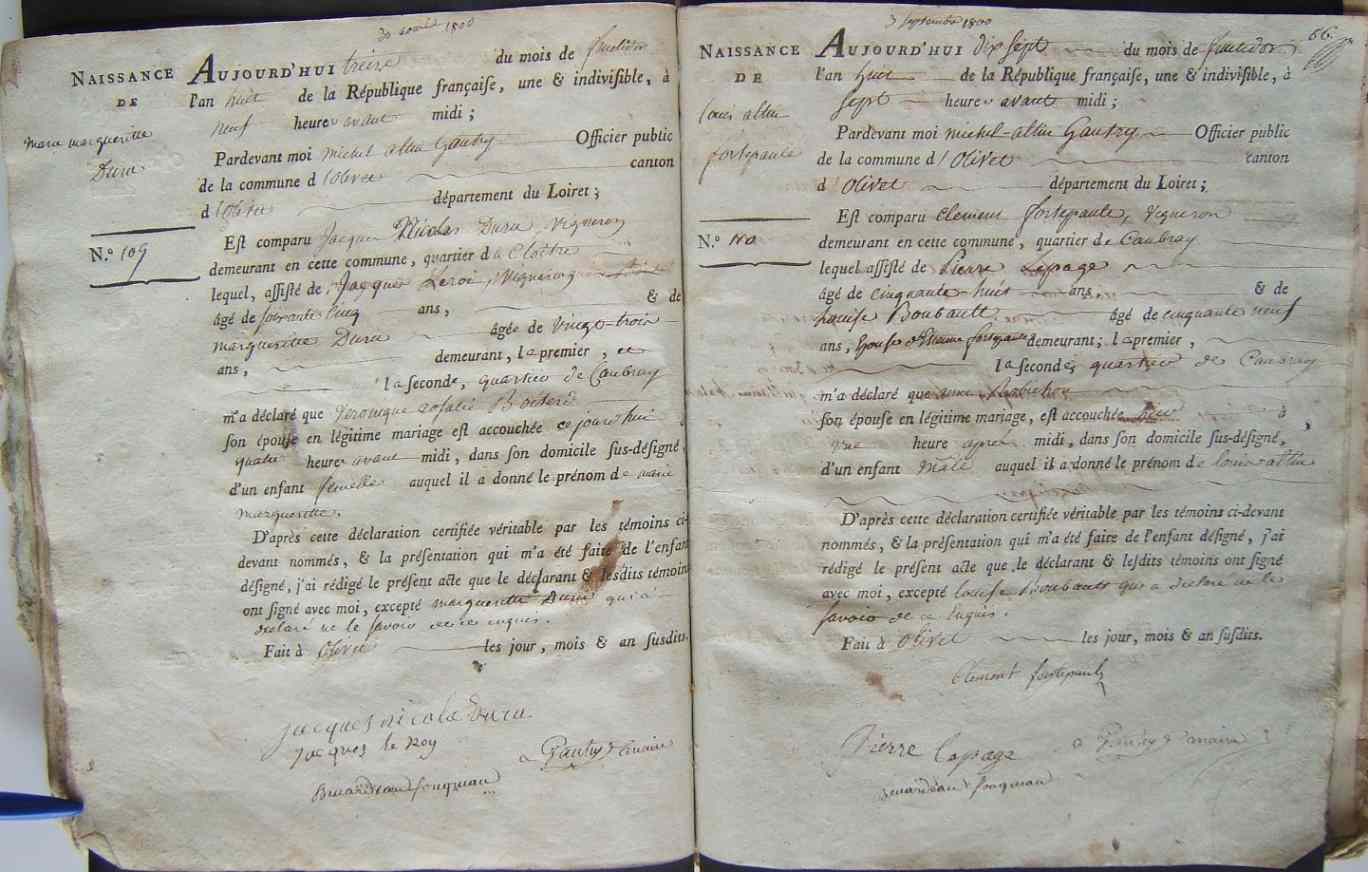 1800
NAISSANCE
DE
marguerite
Dura
N.º 109
AUJOURD'HUI treize du mois de fructidor
l'an huit de la République françaiſe, une & indiviſible, à
neuf heures avant midi ;
Pardevant moi michel altin Gautry Officier public
de la commune d'Olivet canton
d'Olivet département du Loiret ;
Eſt comparu Jacques Nicolas Dura, Vigneron
demeurant en cette commune, quartier du Cloître
lequel, aſſiſté de Jacques Leroi, Vigneron
âgé de soixante cinq ans, & de
marguerite Dura âgée de vingt-trois
ans, demeurant, le premier,
la ſeconde, quartier de Caubray
m'a déclaré que Veronique rosalie
ſon épouſe en légitime mariage eſt accouchée ce jourd'hui
quatre heures avant midi, dans ſon domicile ſus-déſigné,
d'un enfant femelle auquel il a donné le prénom de marie
marguerite.
D'après cette déclaration certifiée véritable par les témoins ci-
devant nommés, & la préſentation qui m'a été faite de l'enfant
déſigné, j'ai rédigé le préſent acte que le déclarant & leſdits témoins
ont ſigné avec moi, excepté marguerite Dura qui a
declaré ne le savoir de ce enquis.
Fait à Olivet les jour, mois & an ſuſdits.
Jacques nicola Dura
Jacques le Roy
Gautry maire
3 septembre 1800
66.
NAISSANCE
DE
louis altin
fortepaule
N.º 110
AUJOURD'HUI dix sept du mois de fructidor
l'an huit de la République françaiſe, une & indiviſible, à
sept heures avant midi ;
Pardevant moi michel-altin Gautry Officier public
de la commune d'Olivet canton
d'Olivet département du Loiret ;
Eſt comparu Clement fortepaule, Vigneron
demeurant en cette commune, quartier de Caubray
lequel aſſiſté de Pierre Lepage
âgé de cinquante-huit ans, & de
Louise Boubault âgé de cinquante neuf
ans, Epouse d'Etienne fortepaule demeurant ; le premier,
la ſeconde, quartier de Caubray
m'a déclaré que
ſon épouſe en légitime mariage, eſt accouchée hier à
une heure après midi, dans ſon domicile ſus-déſigné,
d'un enfant Mâle auquel il a donné le prénom de louis altin
D'après cette déclaration certifiée véritable par les témoins ci-devant
nommés, & la préſentation qui m'a été faite de l'enfant déſigné, j'ai
rédigé le préſent acte que le déclarant & leſdits témoins ont ſigné
avec moi, excepté louise Boubault qui a declaré ne le
savoir de ce Enquis.
Fait à Olivet les jour, mois & an ſuſdits.
Clement fortepaule
Pierre Lapage
Gautry maire